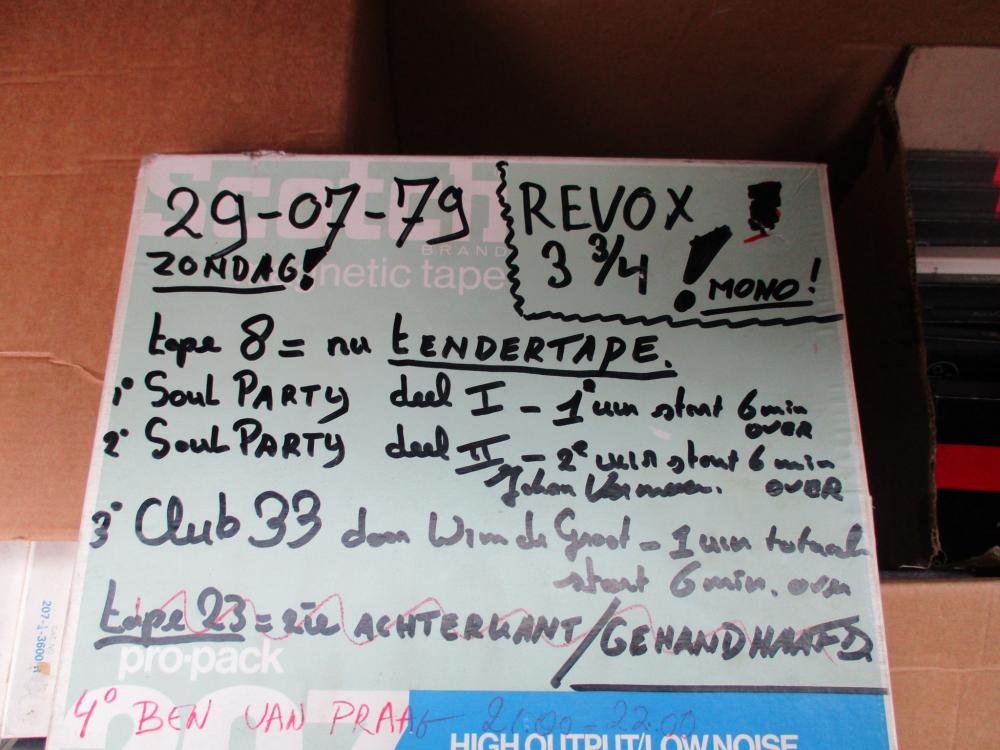 Scotch
29-07-79
BRAND
ZONDAG!
magnetic tape
REVOX
3 3/4 !
MONO!
tape 8 = nu tENDERTAPE.
1° Soul PARTY deel I - 1e uur start 6 min
OVER
2° Soul PARTY deel II - 2e uur start 6 min
Johan Vermeer. OVER
3° Club 33 door Wim de Groot = 1 uur totaal
start 6 min. over
tape 23 = zie ACHTERKANT / GEHANDHAAFD
pro-pack
4° BEN VAN PRAAG 21.00 - 22.00
207
HIGH OUTPUT/LOW NOISE
207-1-3600 R